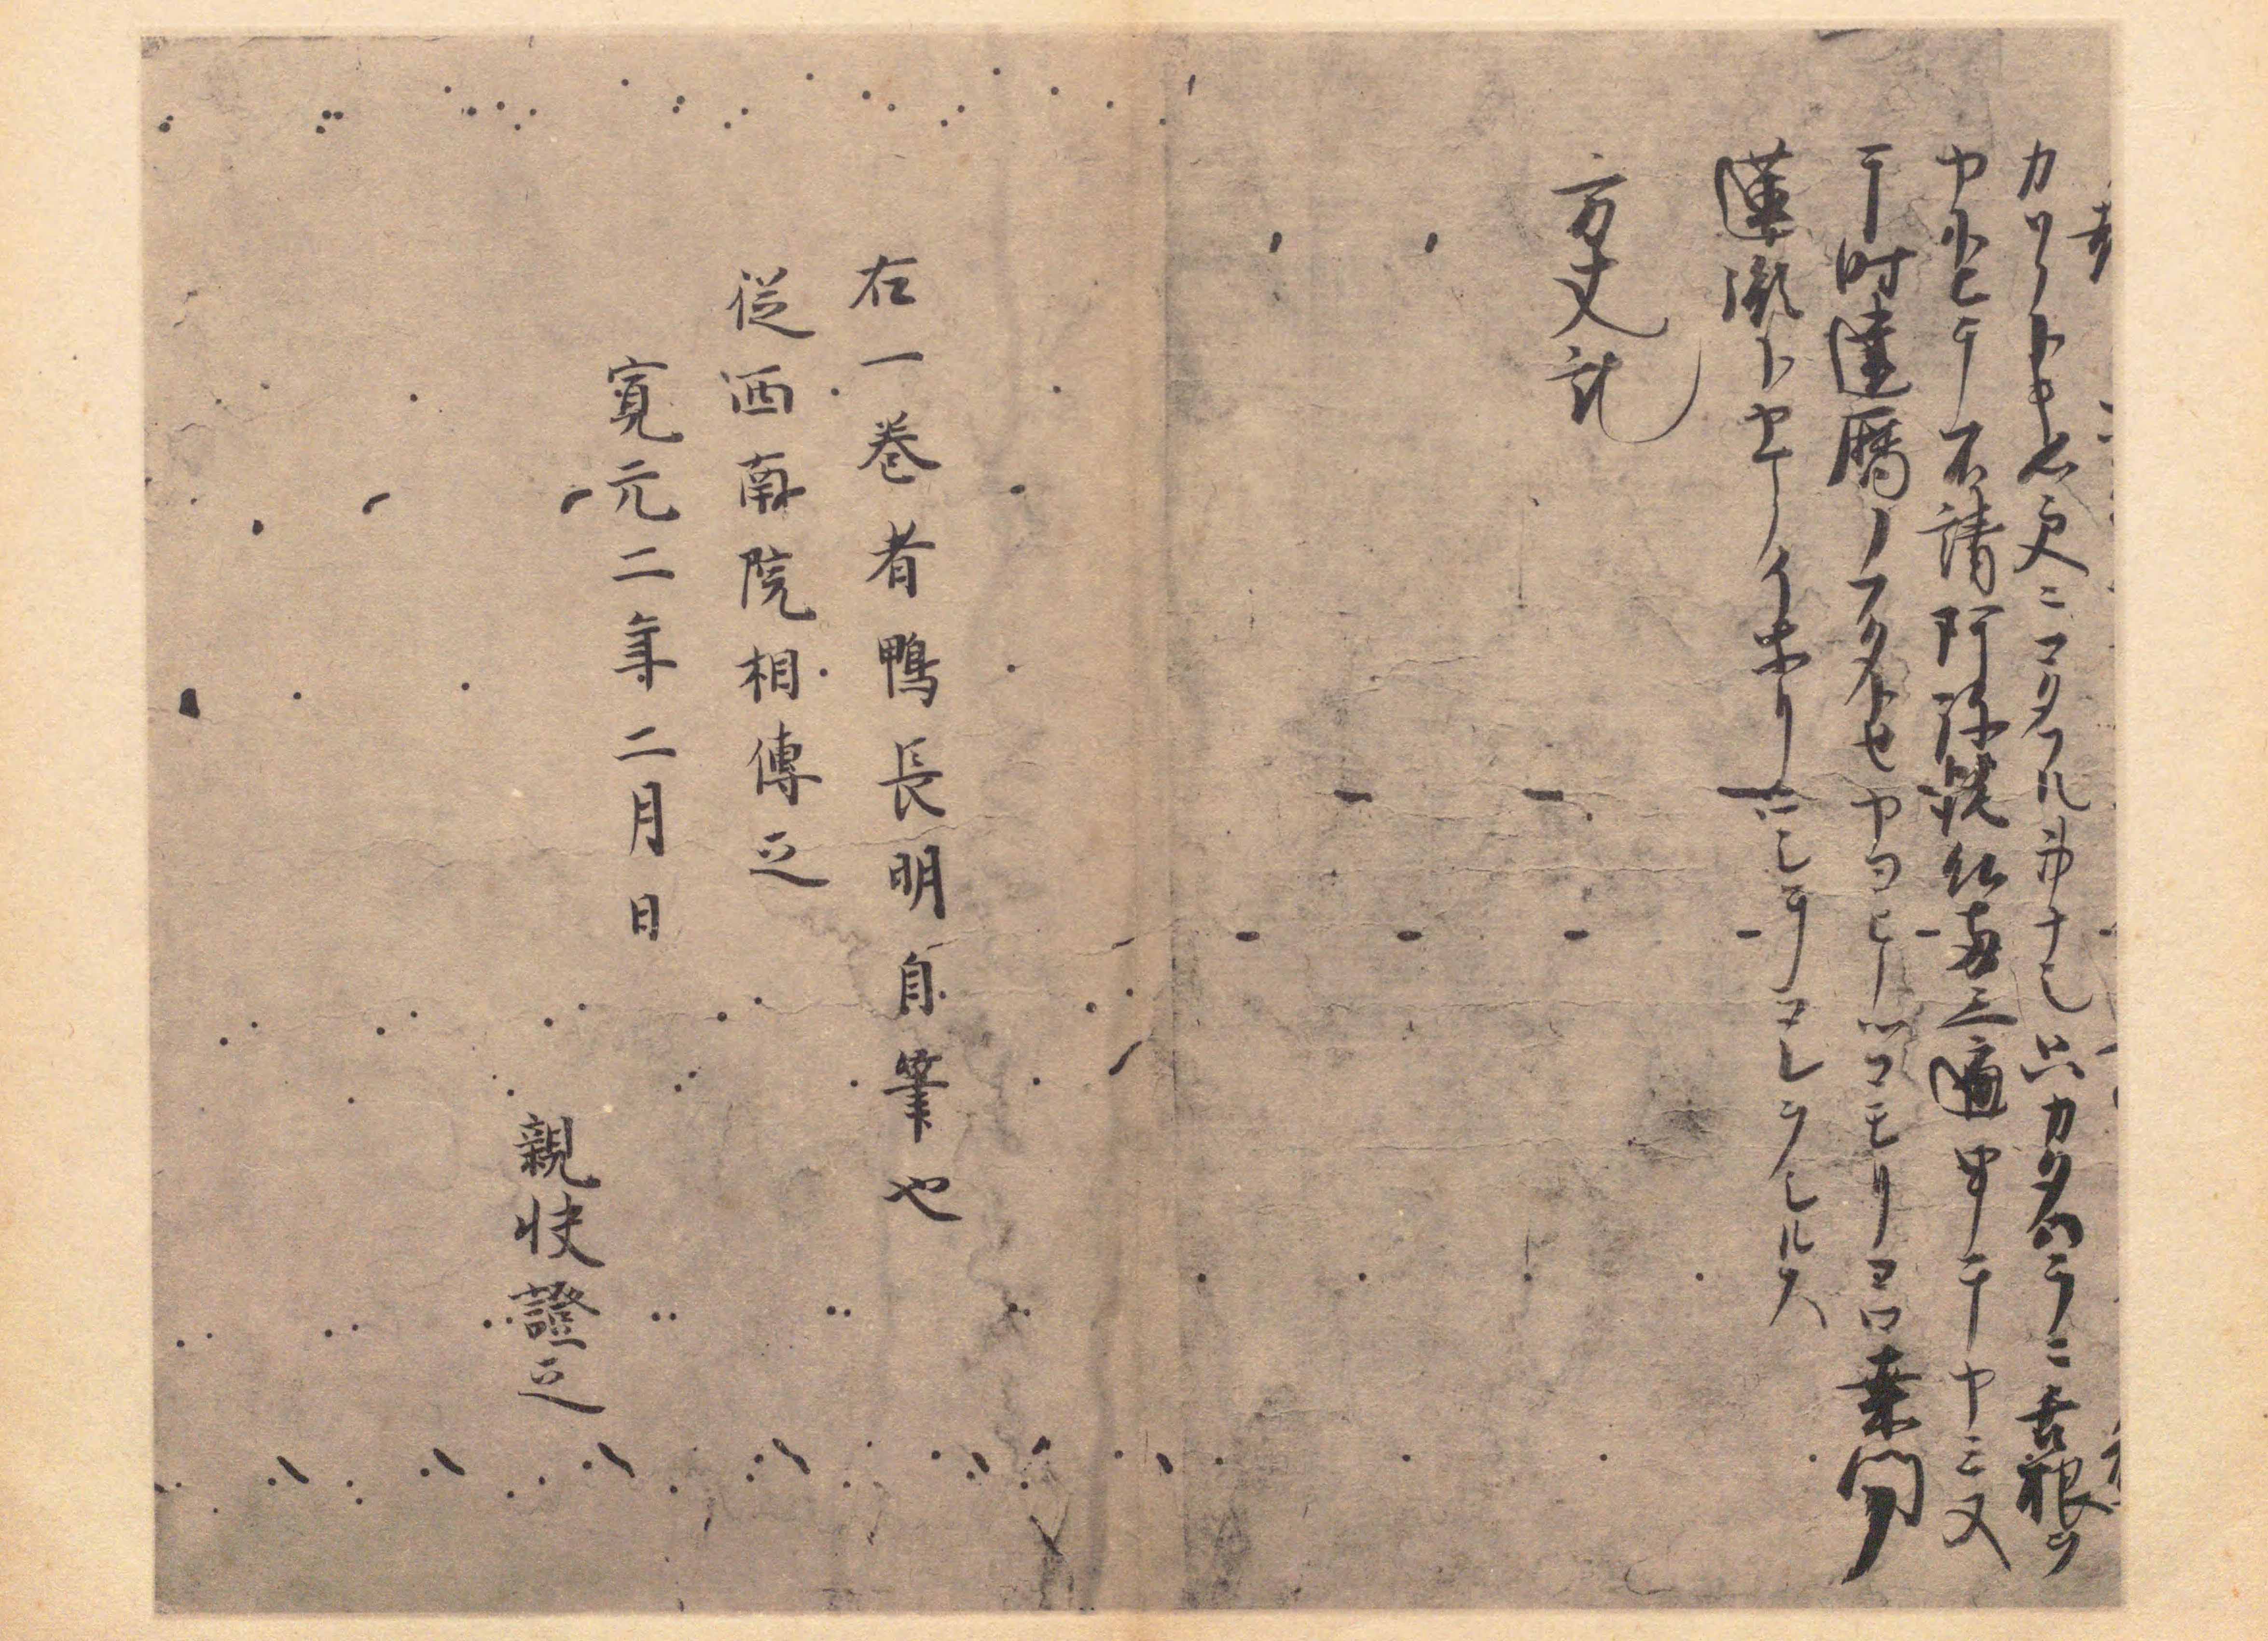 カソノトキ心更ニコタフル事ナシ只カタハラニ舌根ヲ
ヤトヒテ不請阿弥陀仏両三遍申テヤミヌ
于時建暦ノフタトセヤヨヒノツコモリコロ桑門ノ
蓮胤トヤマノイホリニシテコレヲシルス
方丈記
右一巻者鴨長明自筆也
従西南院相傳之
寛元二年二月日
親快證之